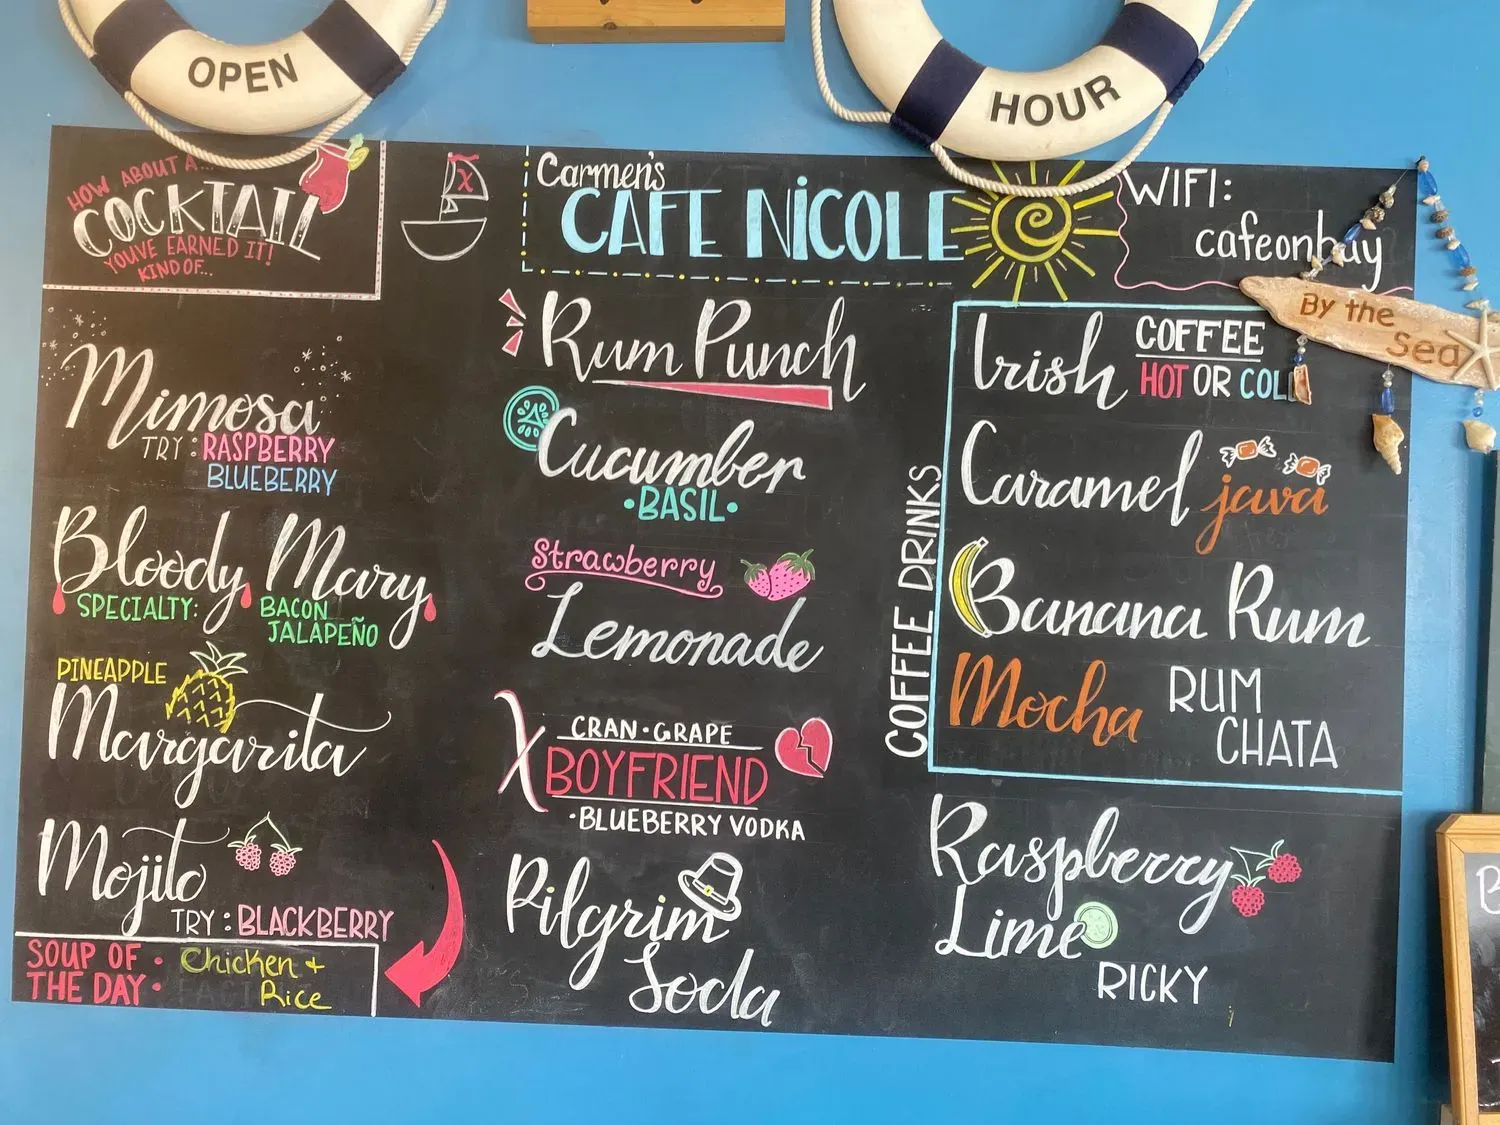 OPEN
HOUR
HOW ABOUT A...
COCKTAIL
YOUVE EARNED IT!
KIND OF...
X
Carmen's
CAFE NiCOLE
WIFI:
cafeonbay
By the
Sea
Mimosa
TRY: RASPBERRY
BLUEBERRY
Bloody Mary
SPECIALTY: BACON
JALAPEÑO
PINEAPPLE
Margarita
Mojito
TRY: BLACKBERRY
SOUP OF •
THE DAY •
Chicken +
Rice
Rum Punch
Cucumber
•BASIL•
Strawberry
Lemonade
CRAN•GRAPE
X BOYFRIEND
•BLUEBERRY VODKA
Pilgrim
Soda
COFFEE DRINKS
Irish COFFEE
HOT OR COLD
Caramel java
Banana Rum
Mocha RUM
CHATA
Raspberry
Lime
RICKY